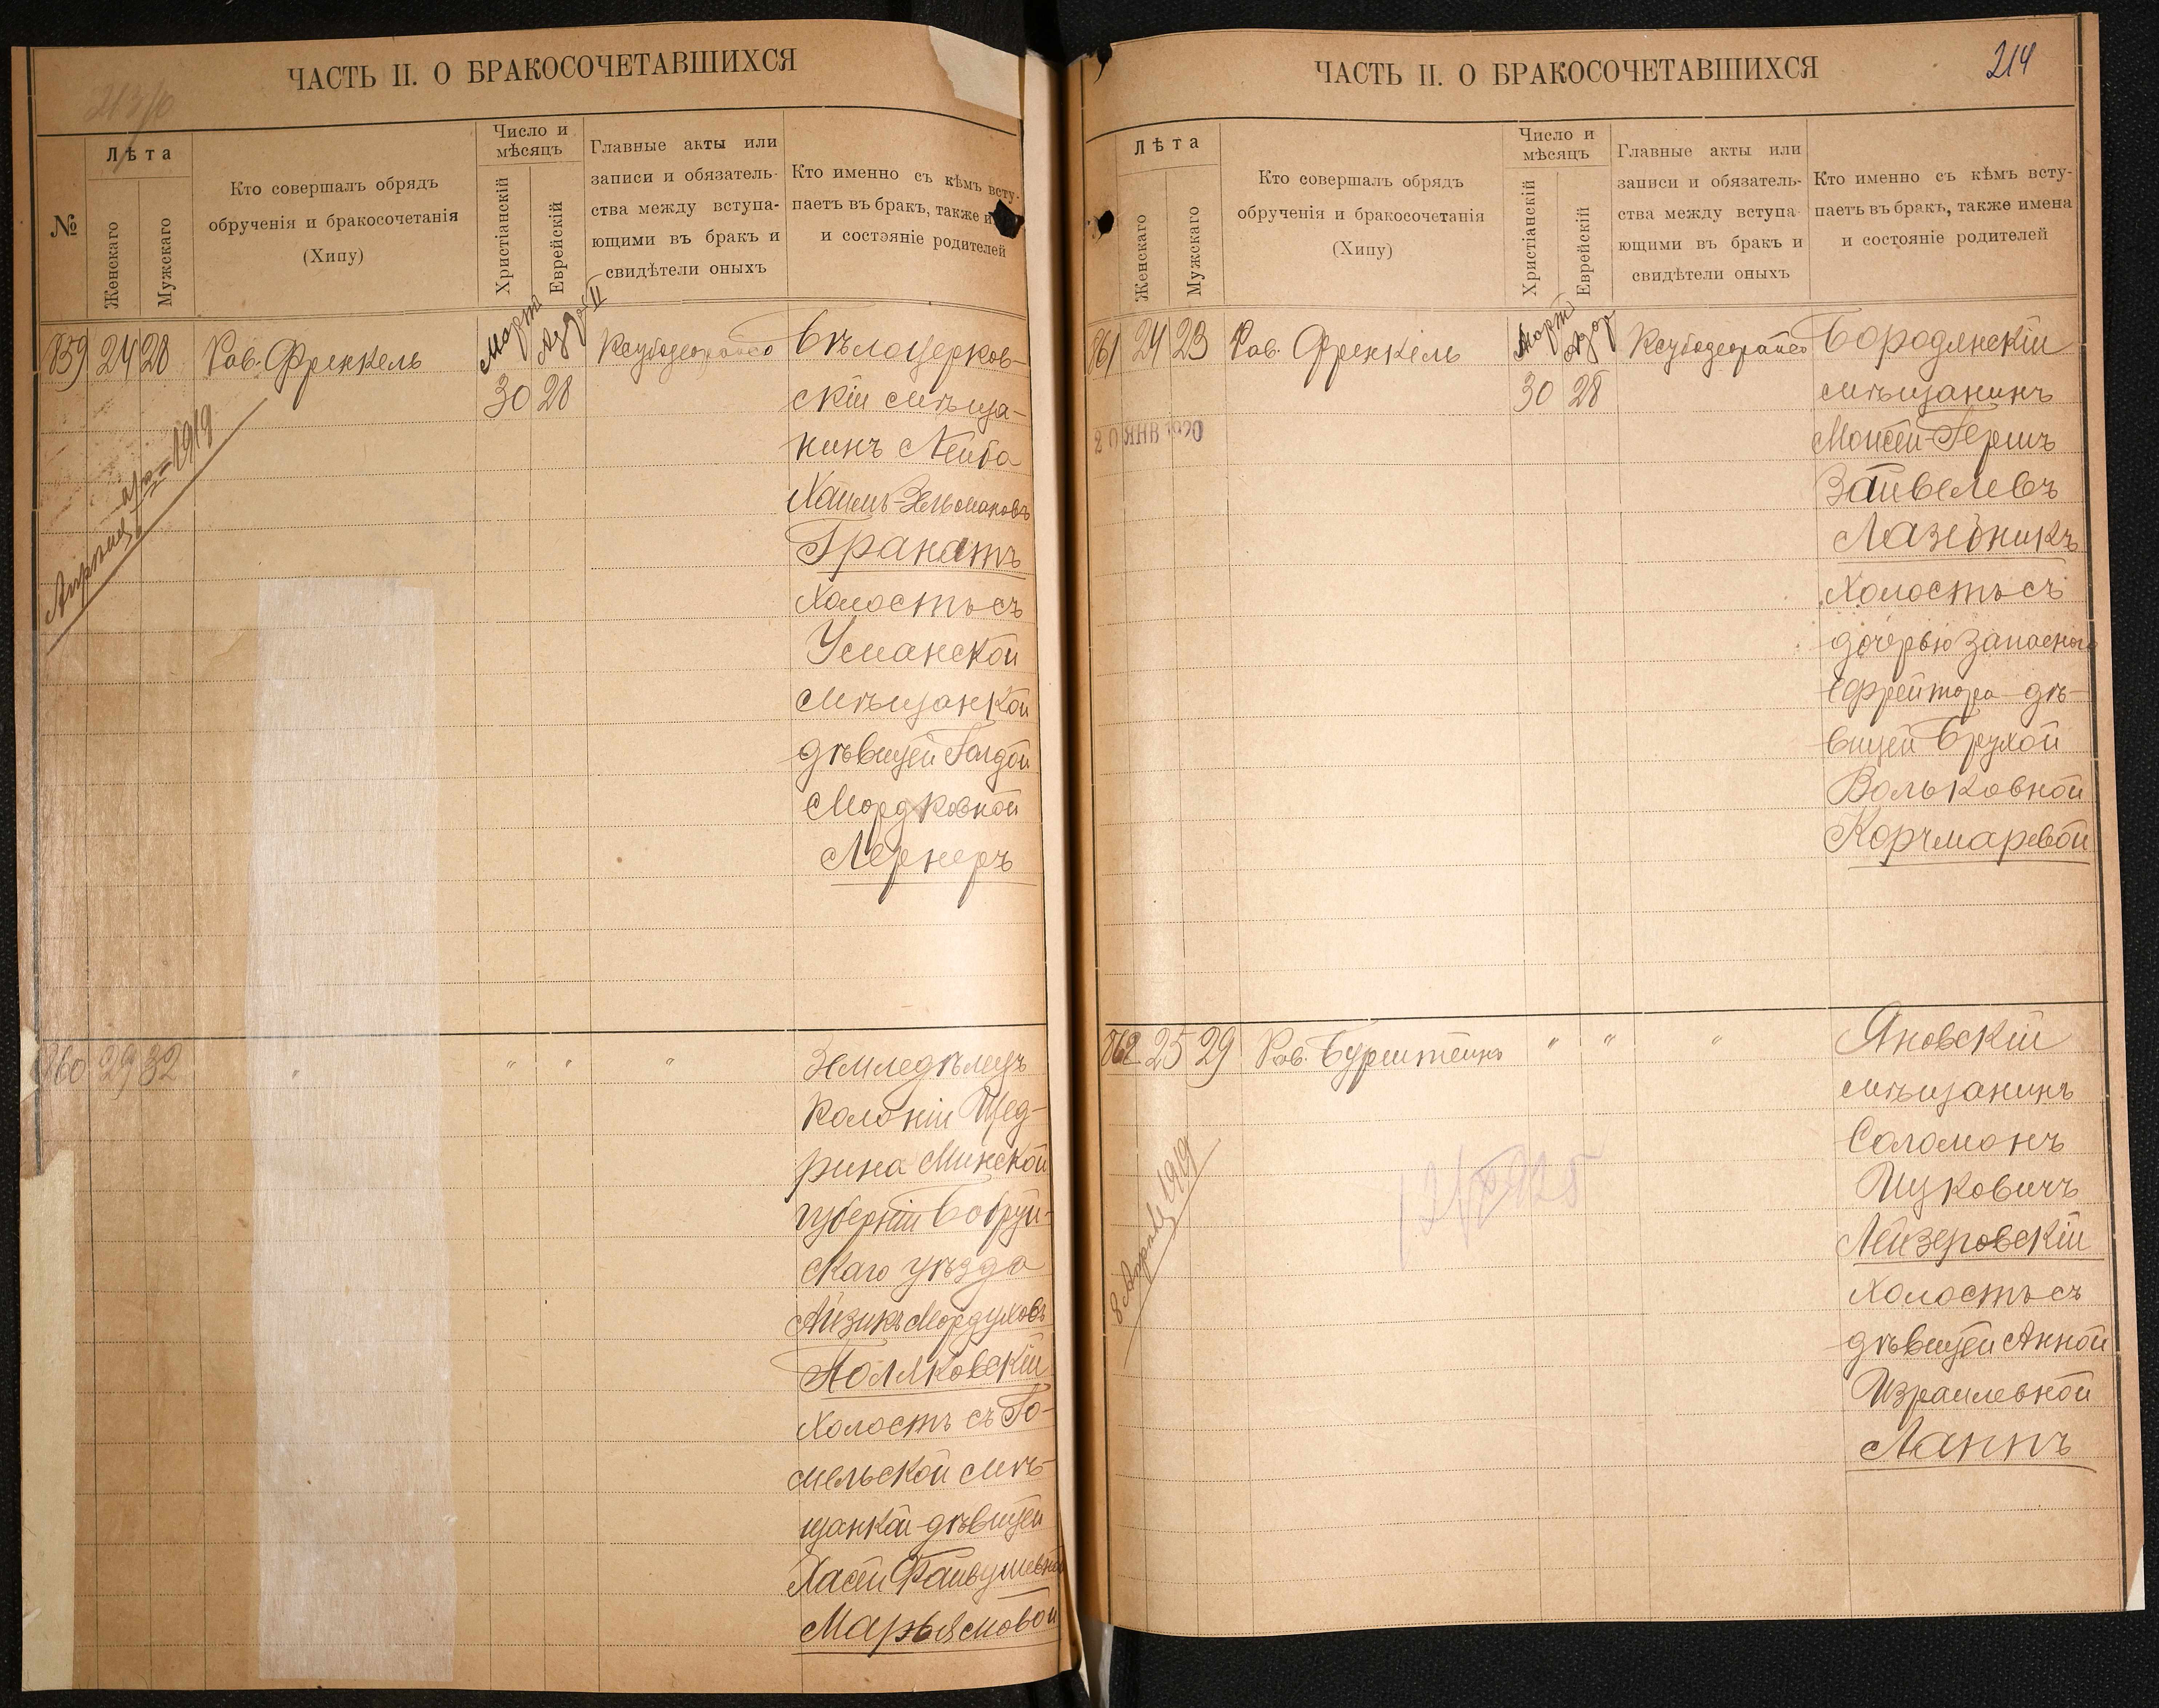 ЧАСТЬ II. О БРАКОСОЧЕТАВШИХСЯ
№
Лѣта
Женскаго
Мужскаго
Кто совершалъ обрядъ
обрученія и бракосочетанія
(Хипу)
Число и
мѣсяцъ
Христіанскій
Еврейскій
Главные акты или
записи и обязатель-
ства между вступа-
ющими въ бракъ и
свидѣтели оныхъ
Кто именно съ кѣмъ всту-
паетъ въ бракъ, также
и состояніе родителей
859 24 28 Рав. Френкель
Мартъ
Адаръ II
30 28
Бѣлоцерков-
скій мѣща-
нинъ Лейба
Хаимъ-Зельмановъ
Гранатъ
холостъ съ
Уманской
мѣщанкой
дѣвицей Голдой
Мордковной
Лернеръ
1919
860 29 32 " " " "
Земледѣлецъ
колоніи Щед-
рина Минской
губерніи Бобруй-
скаго уѣзда
Айзикъ Мордуховъ
Поляковскій
холостъ съ Го-
мельской мѣ-
щанкой дѣвицей
Хасей Файвушевной
Марьясмовой
ЧАСТЬ II. О БРАКОСОЧЕТАВШИХСЯ
214
Лѣта
Женскаго
Мужскаго
Кто совершалъ обрядъ
обрученія и бракосочетанія
(Хипу)
Число и
мѣсяцъ
Христіанскій
Еврейскій
Главные акты или
записи и обязатель-
ства между вступа-
ющими въ бракъ и
свидѣтели оныхъ
Кто именно съ кѣмъ всту-
паетъ въ бракъ, также имена
и состояніе родителей
861 24 23 Рав. Френкель
Мартъ
Адар
30 28
20 ЯНВ 1920
Бородянскій
мѣщанинъ
Моисей-Гершъ
Зайвелевъ
Лазейникъ
холостъ съ
дочерью запаснаго
ефрейтора дѣ-
вицей Брухой
Вольковной
Корчмаревой
862 25 29 Рав. Бурштейнъ " " "
Яновскій
мѣщанинъ
Соломонъ
Ицковичъ
Лейзеровскій
холостъ съ
дѣвицей Анной
Израилевной
Лаппъ
1919